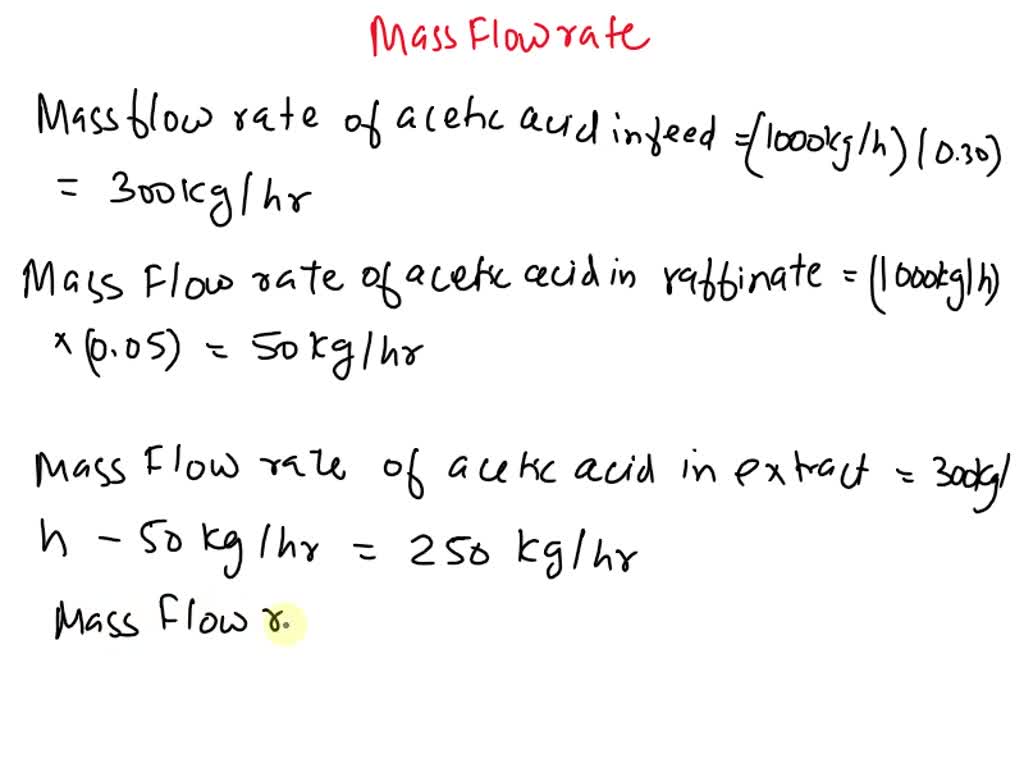 Mass Flow rate
Mass flow rate of acetic acid in feed = (1000kg/h) (0.30)
= 300kg/hr
Mass Flow rate of acetic acid in raffinate = (1000kg/h)
x (0.05) = 50 kg/hr
Mass Flow rate of acetic acid in extract = 300kg/
h - 50 kg/hr = 250 kg/hr
Mass Flow r